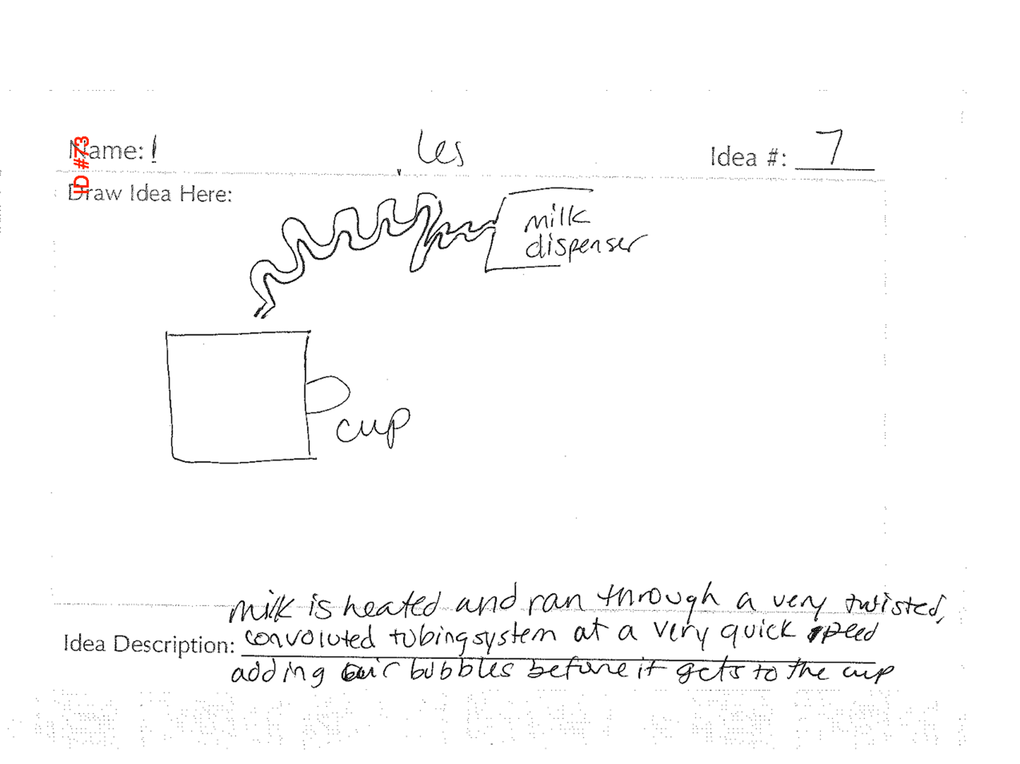 ID #73
Name: Les Idea #: 7
Draw Idea Here:
milk
dispenser
cup
milk is heated and ran through a very twisted,
Idea Description: convoluted tubing system at a very quick speed
adding air bubbles before it gets to the cup